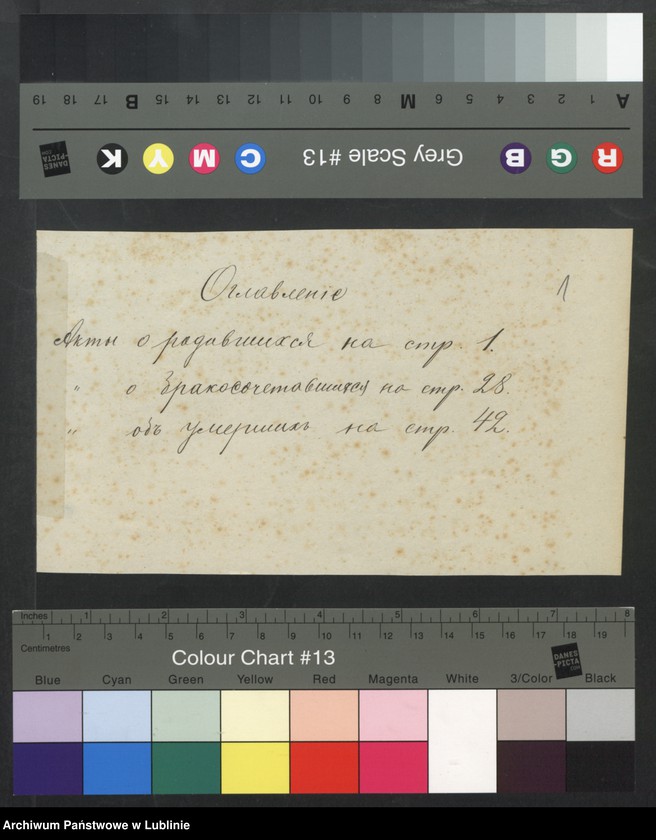 A 1 2 3 4 5 6 M 8 9 10 11 12 13 14 15 B 17 18 19
R G B Grey Scale #13 C M Y K DANES-PICTA.COM
Оглавленіе
1
Акты о родавшихся на стр. 1.
„ о бракосочетавшихся на стр. 28.
„ объ умершихъ на стр. 42.
Inches 1 2 3 4 5 6 7 8
1 2 3 4 5 6 7 8 9 10 11 12 13 14 15 16 17 18 19
Centimetres
Colour Chart #13 DANES-PICTA.COM
Blue Cyan Green Yellow Red Magenta White 3/Color Black
Archiwum Państwowe w Lublinie